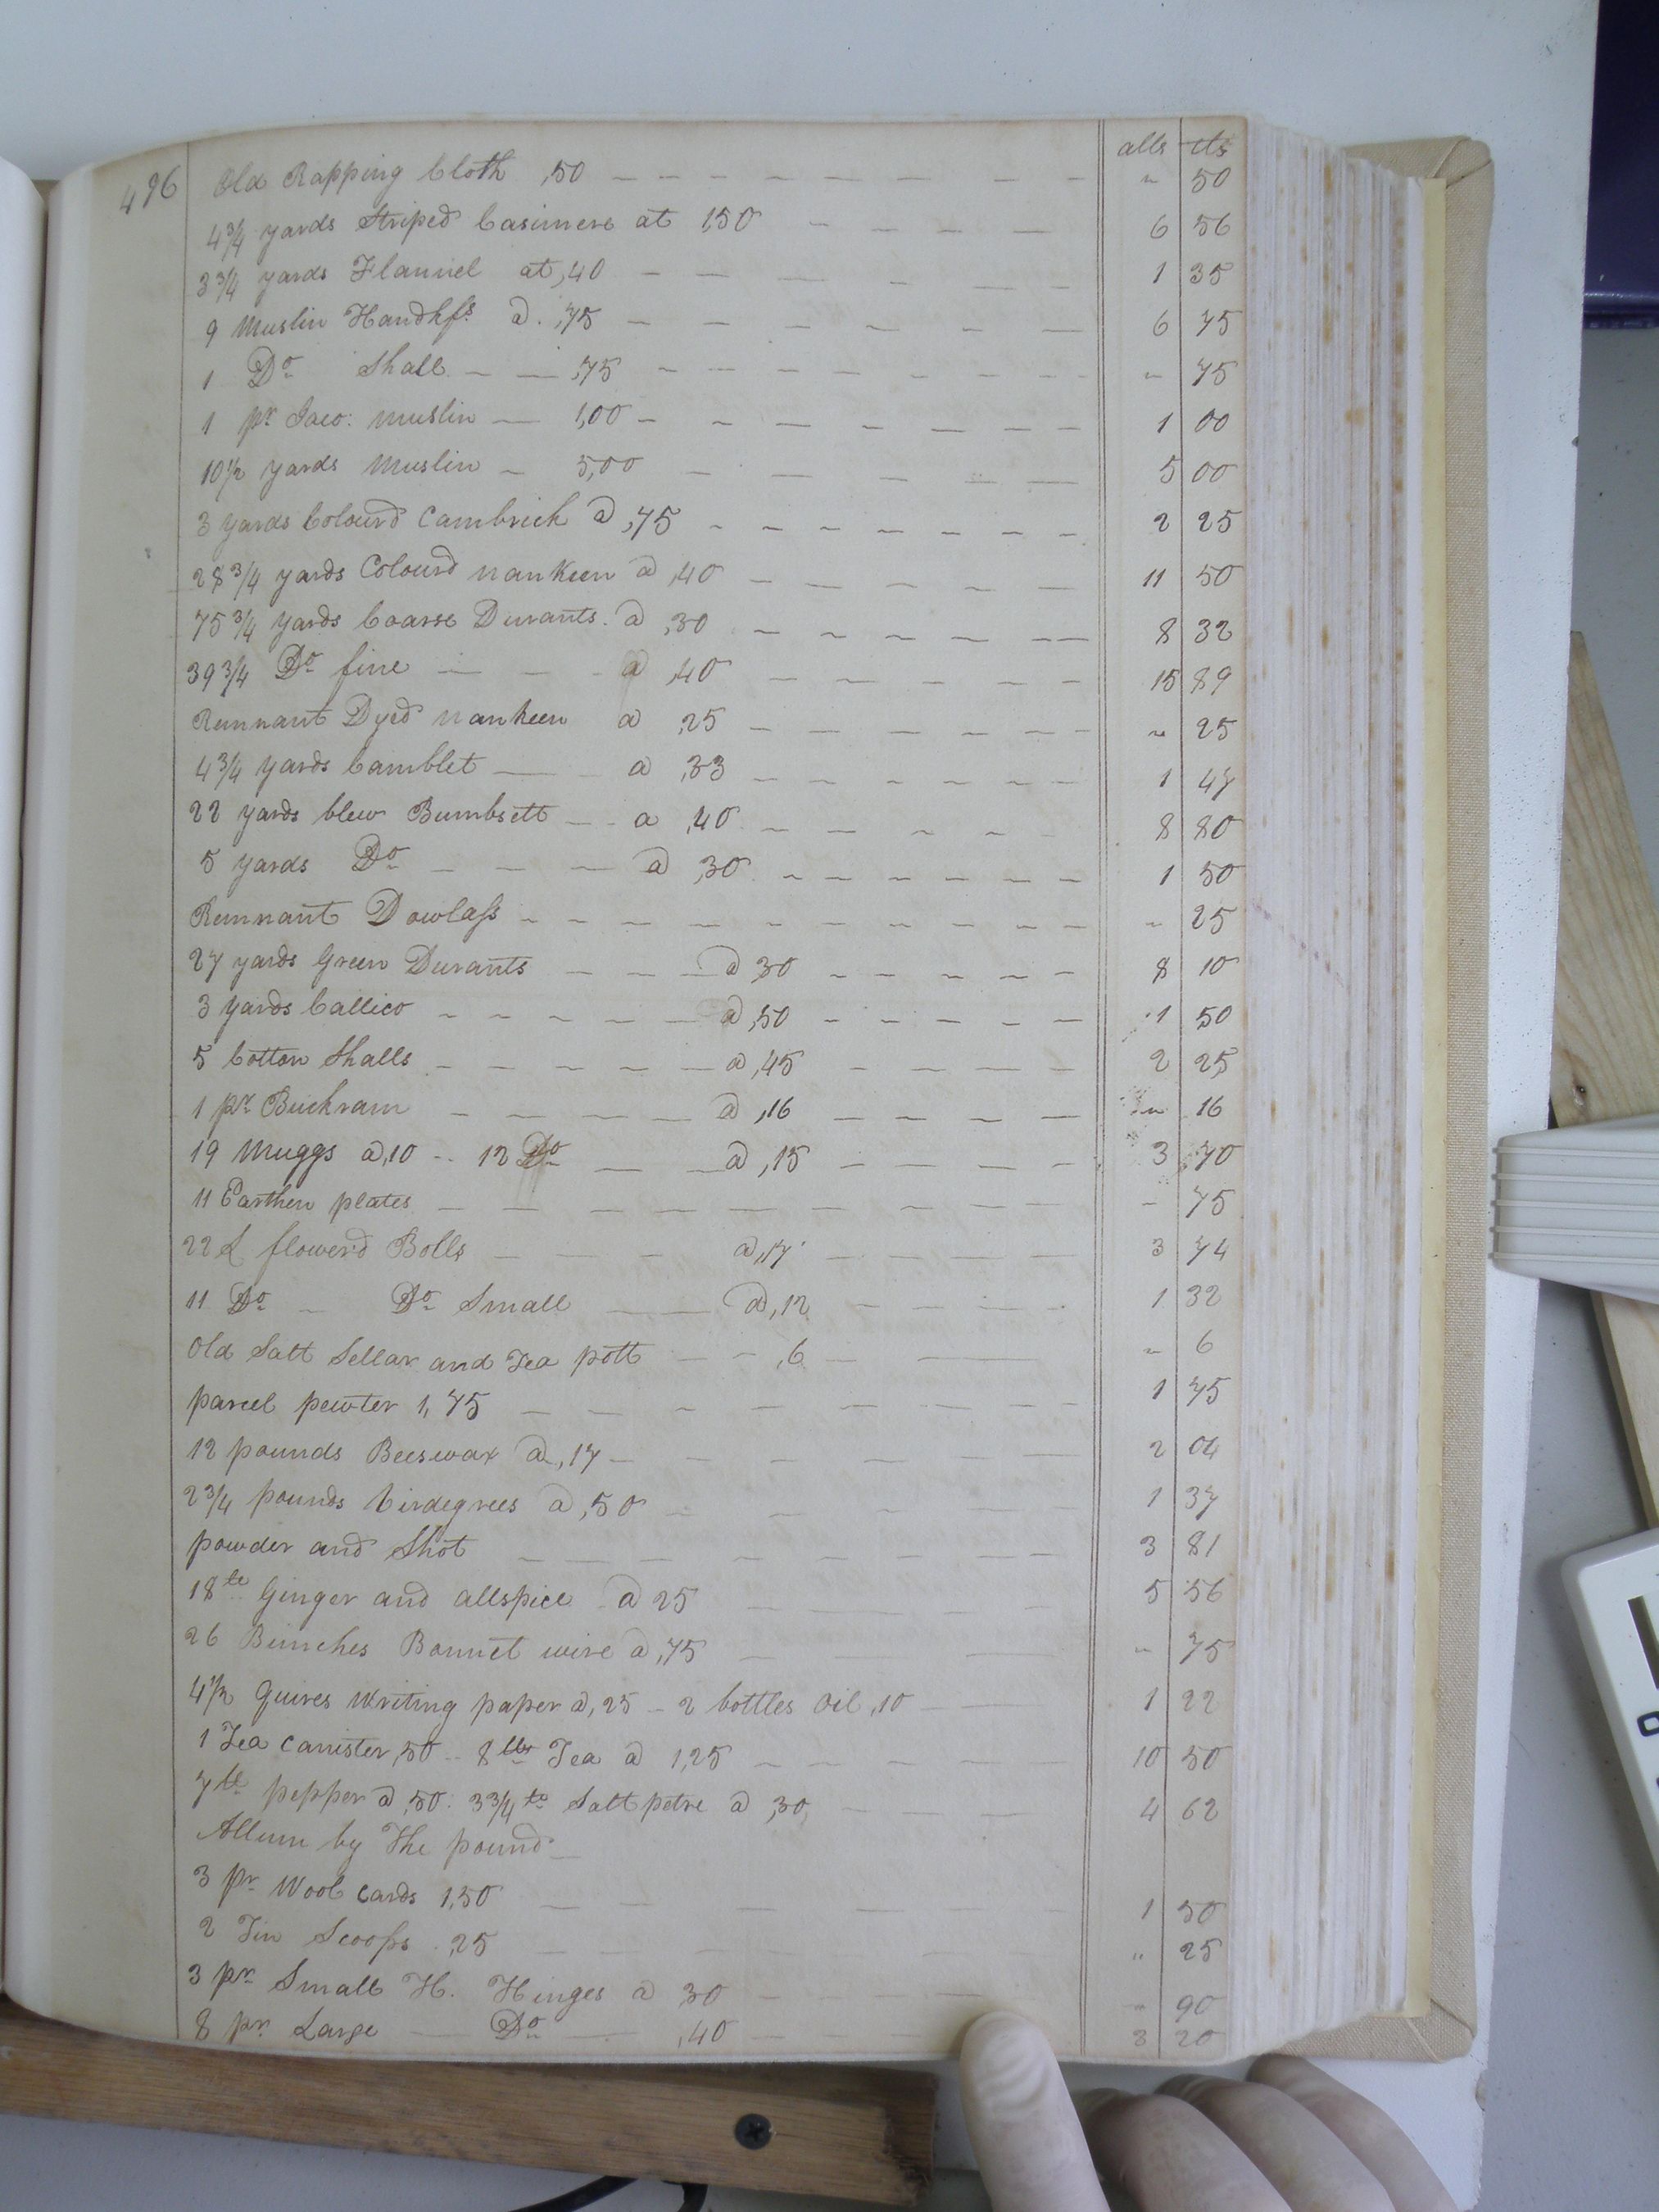 496
alls cts
Old Rapping Cloth ,50 — — — — — — — — — " 50
4 3/4 yards Striped Casimere at 1,50 — — — — 6 56
3 3/4 yards Flannel at ,40 — — — — — — 1 35
9 Muslin Handkfs. a. ,75 — — — — — — 6 75
1 Do Shall — — ,75 — — — — — — — " 75
1 pr Jaco: muslin — 1,00 — — — — — — — 1 00
10 1/2 yards Muslin — 5,00 — — — — — 5 00
3 yards Colourd Cambrick a ,75 — — — — — — — 2 25
28 3/4 yards Colourd nanKeen a ,40 — — — — — — 11 50
75 3/4 yards Coarse Durants. a ,30 — — — — — — 8 32
39 3/4 Do fine — — — a ,40 — — — — — — 15 89
Remnant Dyed nankeen a ,25 — — — — — — — " 25
4 3/4 yards Camblet — — a ,33 — — — — — — 1 47
22 yards blew Bumbsett — — a ,40 — — — — — 8 80
5 yards Do — — — a ,30 — — — — — — — 1 50
Remnant Dowlass — — — — — — — — — — — " 25
27 yards Green Durants — — — a 30 — — — — — — 8 10
3 yards Callico — — — — — — a ,50 — — — — — 1 50
5 Cotton Shalls — — — — — — a ,45 — — — — 2 25
1 pr Buckram — — — — — a ,16 — — — — " 16
19 Muggs a,10 -- 12 Do — — a ,15 — — — — — 3 70
11 Earthen plates — — — — — — — — — — " 75
22 L flowerd Bolls — — — a,17 — — — — 3 74
11 Do — Do Small — — a,12 — — — — 1 32
Old Satt Sellar and Tea pott — — ,6 — — " 6
parcel pewter 1,75 — — — — — — — — — 1 75
12 pounds Beeswax a ,17 — — — — — — 2 04
2 3/4 pounds Cirdegrees a ,50 — — — — 1 37
powder and Shot — — — — — — — — — 3 81
18 lb Ginger and allspice a 25 — — — — 5 56
26 Bunches Bonnet wire a ,75 — — — " 75
4 1/2 Quires Writing paper a ,25 — 2 bottles Oil ,10 — — 1 22
1 Tea Canister ,50 -- 8 lbs Tea a 1,25 — — — — — 10 50
7 lb pepper a ,50. 3 3/4 lb Salt petre a ,30, — — — — 4 62
Allum by The pound —
3 pr Wool Cards 1,50 — — — — — — 1 50
2 Tin Scoops ,25 — — — — — — " 25
3 pr Small H. Hinges a 30 — — — — " 90
8 pr Large — Do — ,40 — — — 3 20